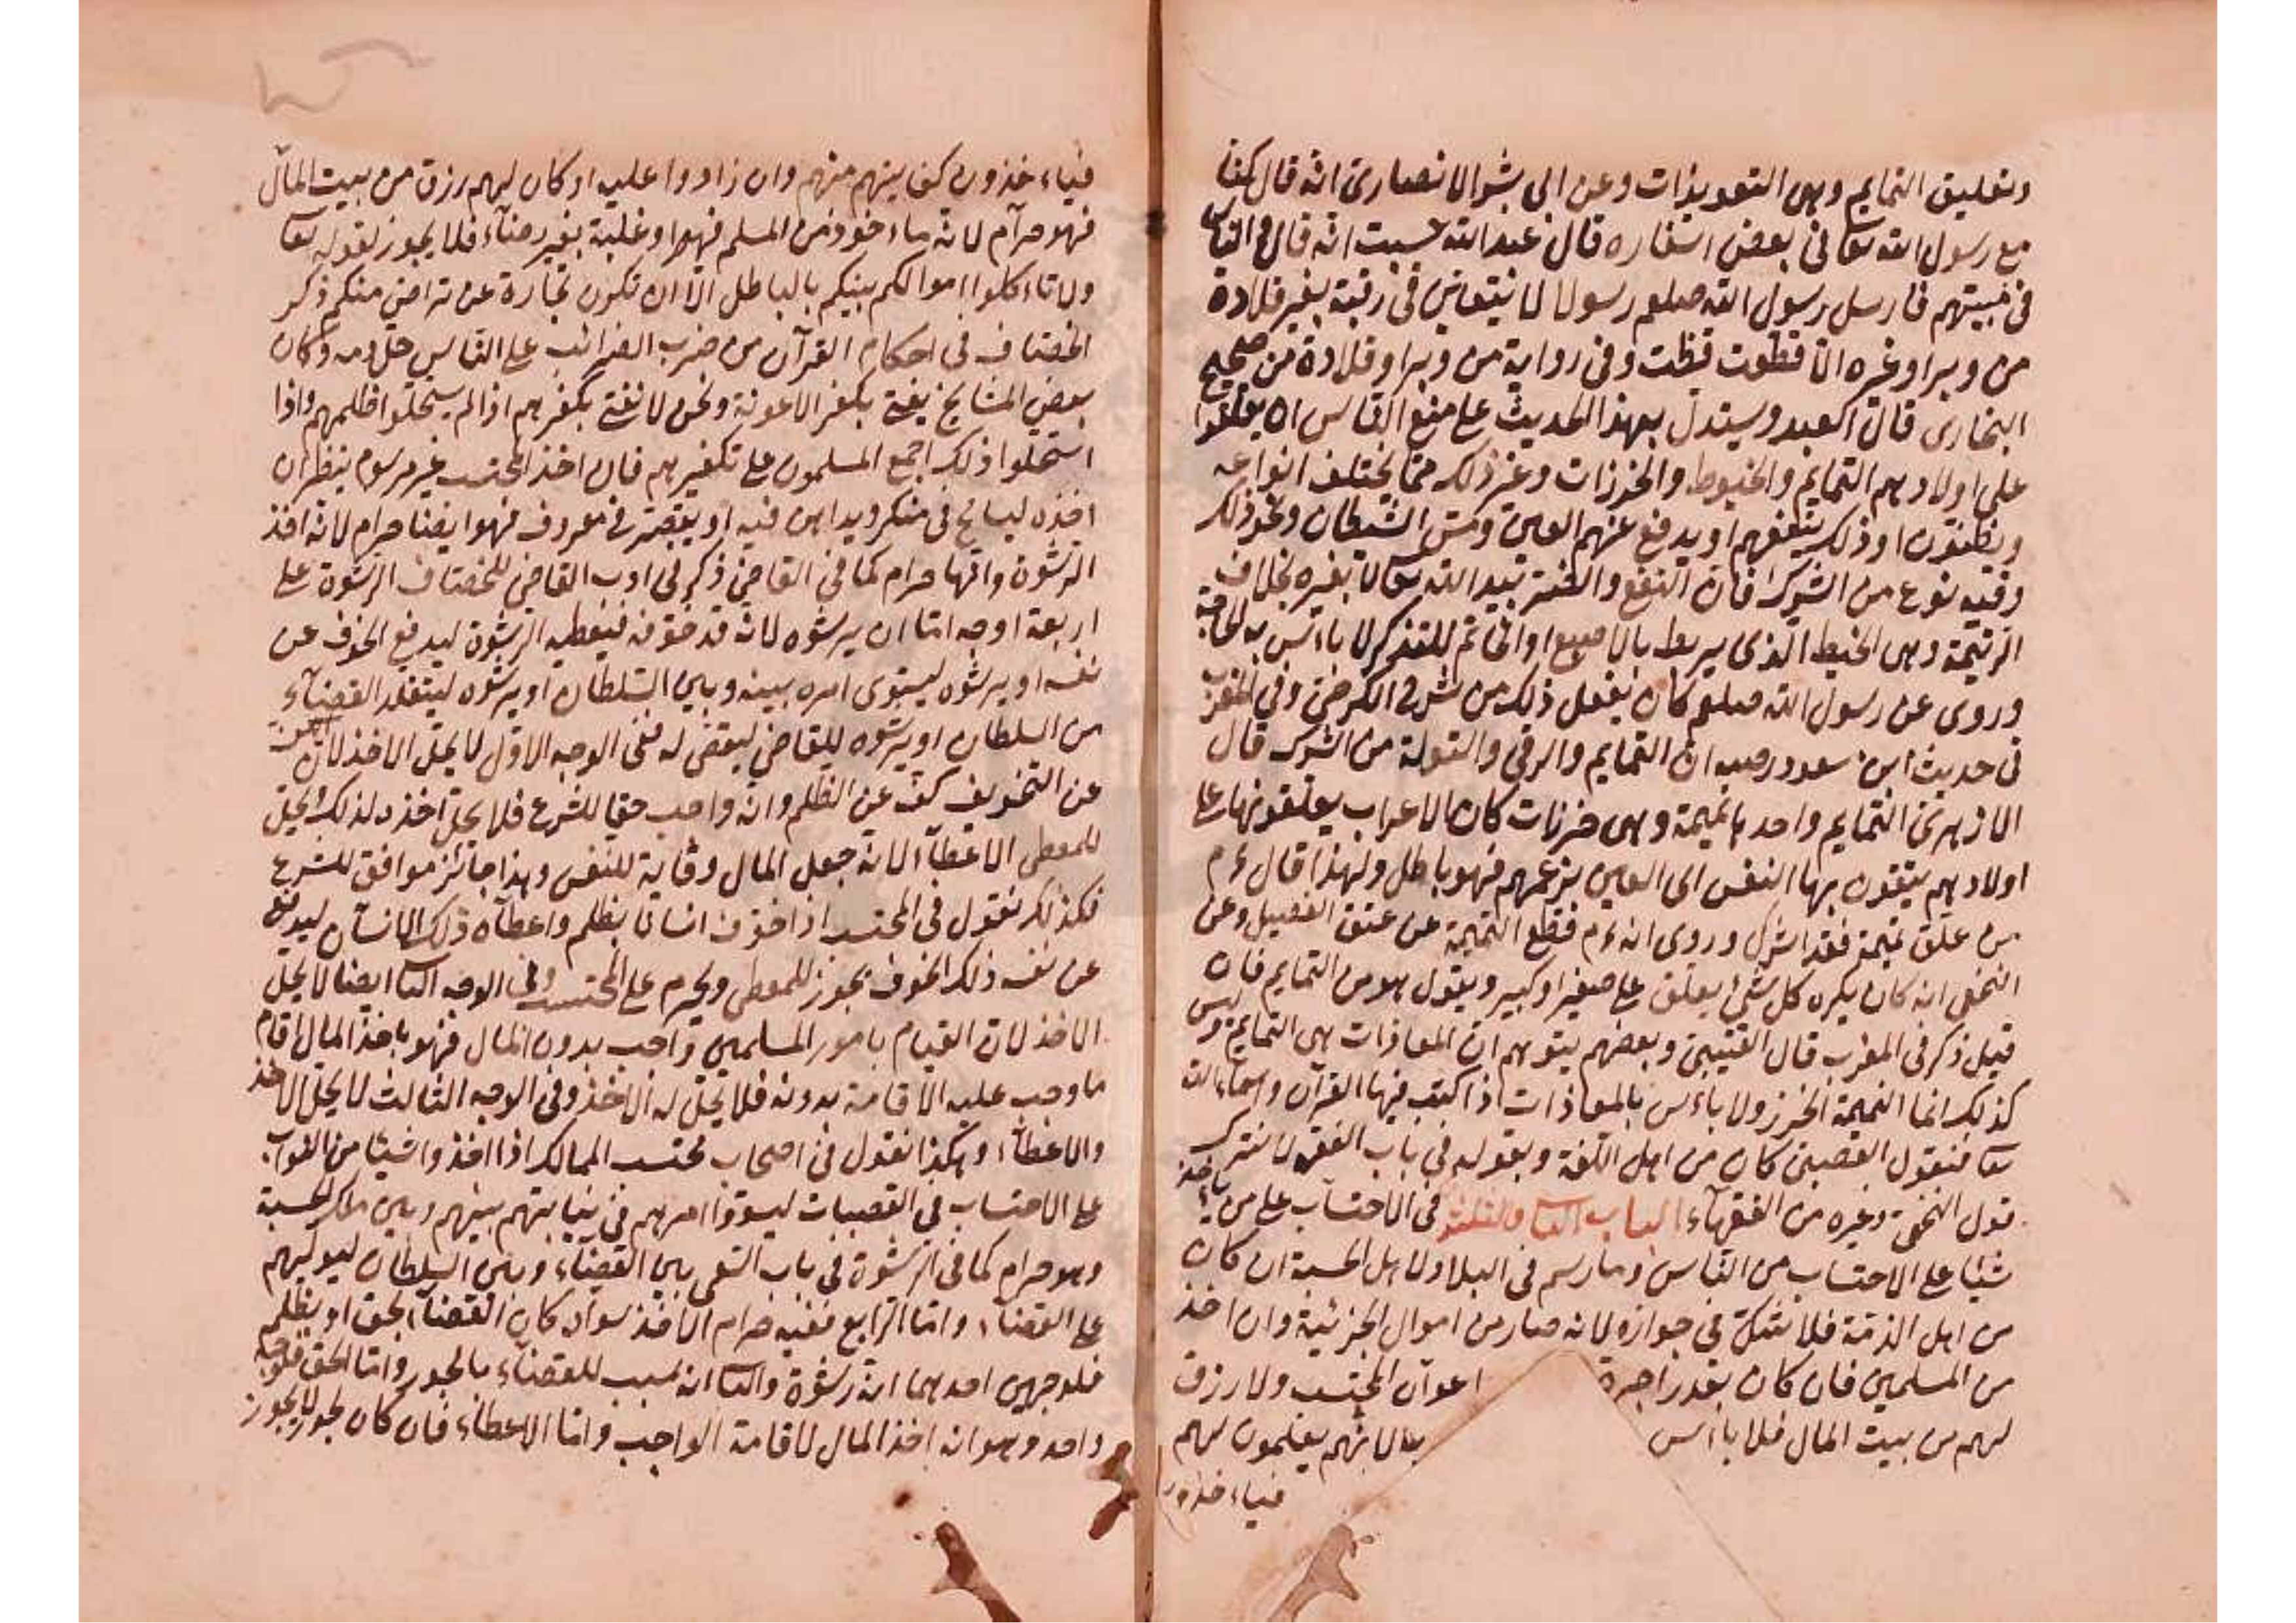 وتعليق التمايم وهى التعويذات وعن ابى بشر الانصارى انه قال كنا
مع رسول الله تعا فى بعض اسفاره قال عبدالله حسبت انه قال والناس
فى مبيتهم فارسل رسول الله صلعم رسولا لا يبقين فى رقبة بغير قلادة
من وبر او غيره الا قطعت وفى رواية من وبر او قلادة من صحيح
البخارى قال العبد ويستدل بهذا الحديث على منع الناس ان يعلقوا
على اولادهم التمايم والخيوط والخرزات وغير ذلك مما يختلف انواعه
ويظنون ان ذلك ينفعهم او يدفع عنهم العين ومس الشيطان ونحو ذلك
وفيه نوع من الشرك فان النفع والضر بيد الله تعا لا بغيره بخلاف
الرتيمة وهى الخيط الذى يربط بالاصبع او الخاتم للتذكر لا باس به لحاجة
وروى عن رسول الله صلعم كان يفعل ذلك من شرح الكرخى وفى المغرب
فى حديث ابن مسعود رضه ان التمايم والرقى والتولة من الشرك قال
الازهرى التمايم واحدها تميمة وهى خرزات كان الاعراب يعلقونها على
اولادهم يتقون بها النفس اى العين بزعمهم فهو باطل ولهذا قال ءم
من علق تميمة فقد اشرك وروى انه ءم قطع التميمة عن عنق الفضيل وعن
النخعى انه كان يكره كل شئ يعلق على صغير او كبير ويقول هو من التمايم فان
قيل ذكر فى المغرب قال القتيبى وبعضهم يتوهم ان المعاذات هى التمايم وليس
كذلك انما التميمة الخرز ولا باءس بالمعاذات اذا كتب فيها القرآن واسماء الله
تعا فنقول القتيبى كان من اهل اللغة وبقوله فى باب الفقه لا نترك
قول النخعى وغيره من الفقهاء الباب الثا والثلثون فى الاحتساب على من ياخذ
شيئا على الاحتساب من الناس وما رسم فى البلاد لاهل الحسبة ان كان
من اهل الذمة فلا شك فى جوازه لانه صار من اموال الجزئية وان اخذ
من المسلمين فان كان بقدر اجرة اعوان المحتسب ولا رزق
لهم من بيت المال فلا باءس بها لانهم يعلمون لهم
فياءخذون
فياءخذون كفايتهم منهم وان زادوا عليه او كان لهم رزق من بيت المال
فهو حرام لانه ماءخوذ من المسلم قهرا وغلبة بغير رضاء فلا يجوز لقوله تعا
ولا تاءكلوا اموالكم بينكم بالباطل الا ان تكون تجارة عن تراض منكم ذكر
الخصاف فى احكام القرآن من ضرب الضرائب على الناس حل دمه وكان
بعض المشايخ يفتى بكفر الاعونة ونحن لا نفتى بكفرهم اذا لم يستحلوا ظلمهم واذا
استحلوا ذلك اجمع المسلمون على تكفيرهم فان اخذ المحتسب غير مرسوم ينظر ان
اخذه ليسامح فى منكر ويداهن فيه او يقصر فى معروف فهو ايضا حرام لانه اخذ
الرشوة وانها حرام كما فى القاضى ذكر فى ادب القاضى للخصاف الرشوة على
اربعة اوجه اما ان يرشوه لانه قد خوفه فيعطيه الرشوة ليدفع الخوف عن
نفسه او يرشوه ليسوى امره بينه وبين السلطان او يرشوه ليتقلد القضاء
من السلطان او يرشوه للقاضى ليقضى له ففى الوجه الاول لا يحل الاخذ لان الكف
عن التخويف كف عن الظلم وانه واجب حقا للشرع فلا يحل اخذه لذلك ويحل
للمعطى الاعطاء لانه جعل المال وقاية للنفس وهذا جائز موافق للشرع
فكذلك نقول فى المحتسب اذا خوف انسانا بظلم واعطاه ذلك الانسان ليدفع
عن نفسه ذلك الخوف يجوز للمعطى ويحرم على المحتسب وفى الوجه الثا ايضا لا يحل
الاخذ لان القيام بامور المسلمين واجب بدون المال فهو ياخذ المال لاقام
ما وجب عليه الاقامة بدونه فلا يحل له الاخذ وفى الوجه الثالث لا يحل الاخذ
والاعطاء وهكذا نقول فى اصحاب محتسب الممالك اذا اخذوا شيئا من النواب
على الاحتساب فى القصبات ليسووا امرهم فى نيابتهم بينهم وبين ملاك الحسبة
وهو حرام كما فى الرشوة فى باب السعى بين القضاء وبين السلطان ليوليهم
على القضاء واما الرابع ففيه حرام الاخذ سواء كان القضاء بحق او بظلم
فلوجهين احدهما انه رشوة والثا انه سبب للقضاء بالجور واما الحق فلوجه
واحد وهو انه اخذ المال لاقامة الواجب واما الاعطاء فان كان لجور لا يجوز